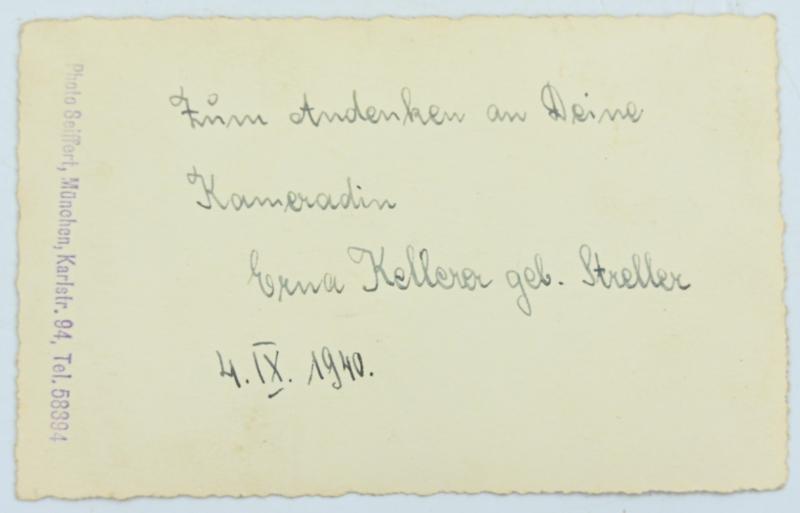 Zum Andenken an Deine
Kameradin
Erna Kellerer geb. Streller
4. IX. 1940.
Photo Seiffert, München, Karlstr. 94, Tel. 58394